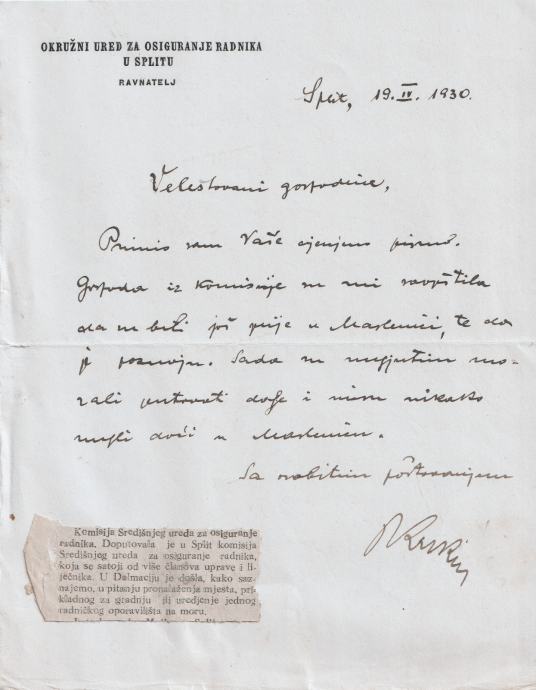 OKRUŽNI URED ZA OSIGURANJE RADNIKA
U SPLITU
RAVNATELJ
Split, 19. IV. 1930.
Velestovani gospodine,
Primio sam Vaše cijenjeno pismo.
Gospoda iz Komisije su mi saopštila
da su bili još prije u Maslinici, te da
je poznaju. Sada su međutim mo-
rali putovati dalje i nisu nikako
mogli doći u Maslinicu.
Sa osobitim poštovanjem
Komisija Središnjeg ureda za osiguranje
radnika. Doputovala je u Split komisija
Središnjeg ureda za osiguranje radnika,
koja se satoji od više članova uprave i li-
ječnika. U Dalmaciju je došla, kako saz-
najemo, u pitanju pronalaženja mjesta, pri-
kladnog za gradnju ili uredjenje jednog
radničkog oporavilišta na moru.